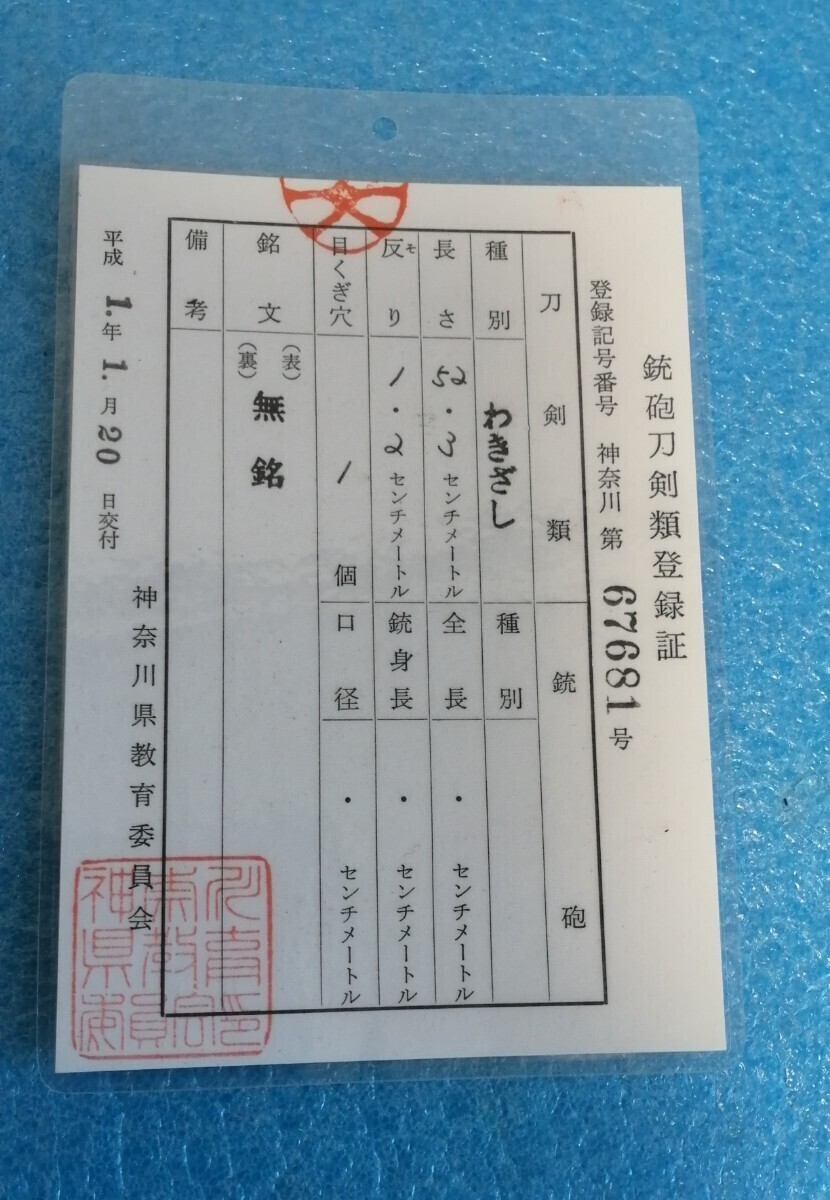 銃砲刀剣類登録証
登録記号番号 神奈川 第 67681 号
刀剣類
種別 わきざし
長さ 52.3 センチメートル
反り 1.2 センチメートル
ソモ
目くぎ穴 1 個
銘文 (表) (裏) 無銘
備考
銃砲
種別
全長 ・ センチメートル
銃身長 ・ センチメートル
口径 ・ センチメートル
平成 1.年 1.月 20 日交付
神奈川県教育委員会